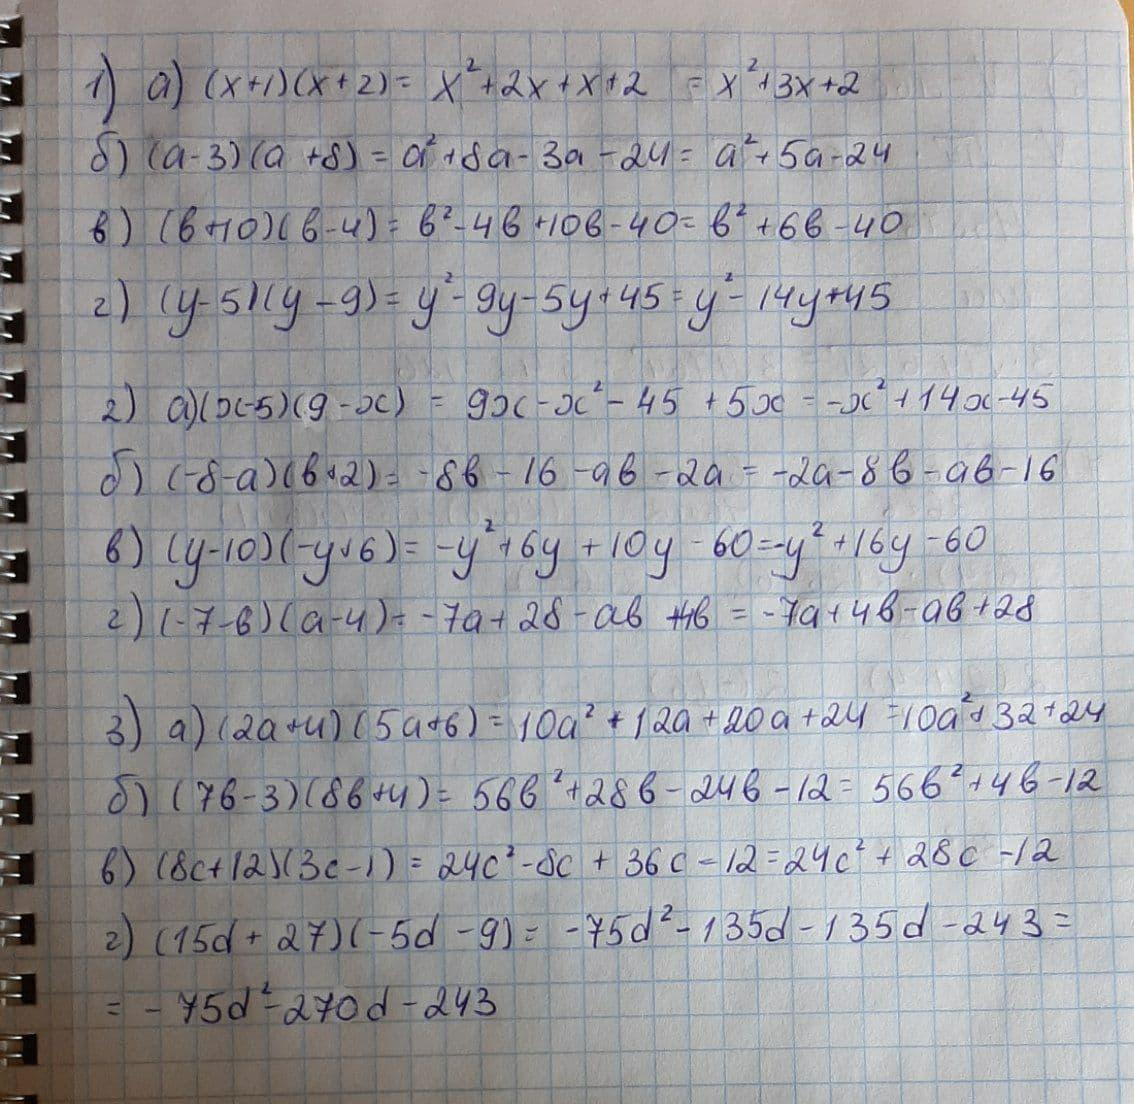 1) а) (x+1)(x+2)= x²+2x+x+2 = x²+3x+2
б) (a-3)(a+8)= a²+8a-3a-24= a²+5a-24
в) (в+10)(в-4)= в²-4в+10в-40= в²+6в-40
г) (y-5)(y-9)= y²-9y-5y+45= y²-14y+45
2) а)(x-5)(9-x) = 9x-x²-45+5x = -x²+14x-45
б) (-8-a)(в+2)= -8в-16-aв-2a = -2a-8в-aв-16
в) (y-10)(-y+6)= -y²+6y+10y-60=-y²+16y-60
г) (-7-в)(a-4)= -7a+28-aв+4в = -7a+4в-aв+28
3) а) (2a+4)(5a+6)= 10a²+12a+20a+24=10a²+32+24
б) (7в-3)(8в+4)= 56в²+28в-24в-12= 56в²+4в-12
в) (8c+12)(3c-1)= 24c²-8c+36c-12=24c²+28c-12
г) (15d+27)(-5d-9)= -75d²-135d-135d-243=
= -75d²-270d-243